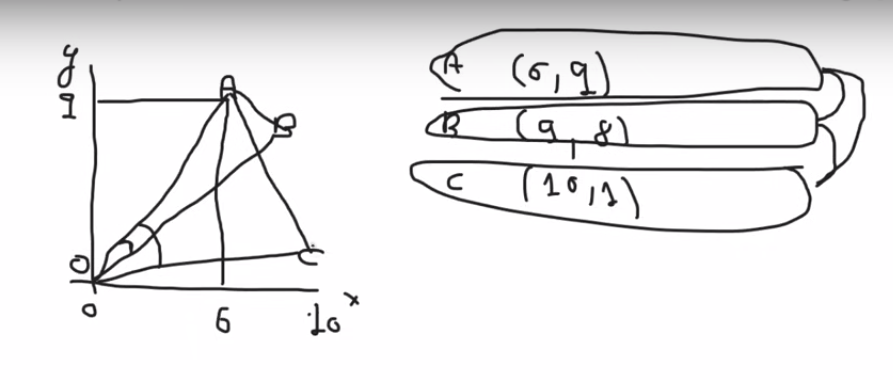 y
9
A
B
C
O
0
6
10
x
A (6,9)
B (9,8)
C (10,1)